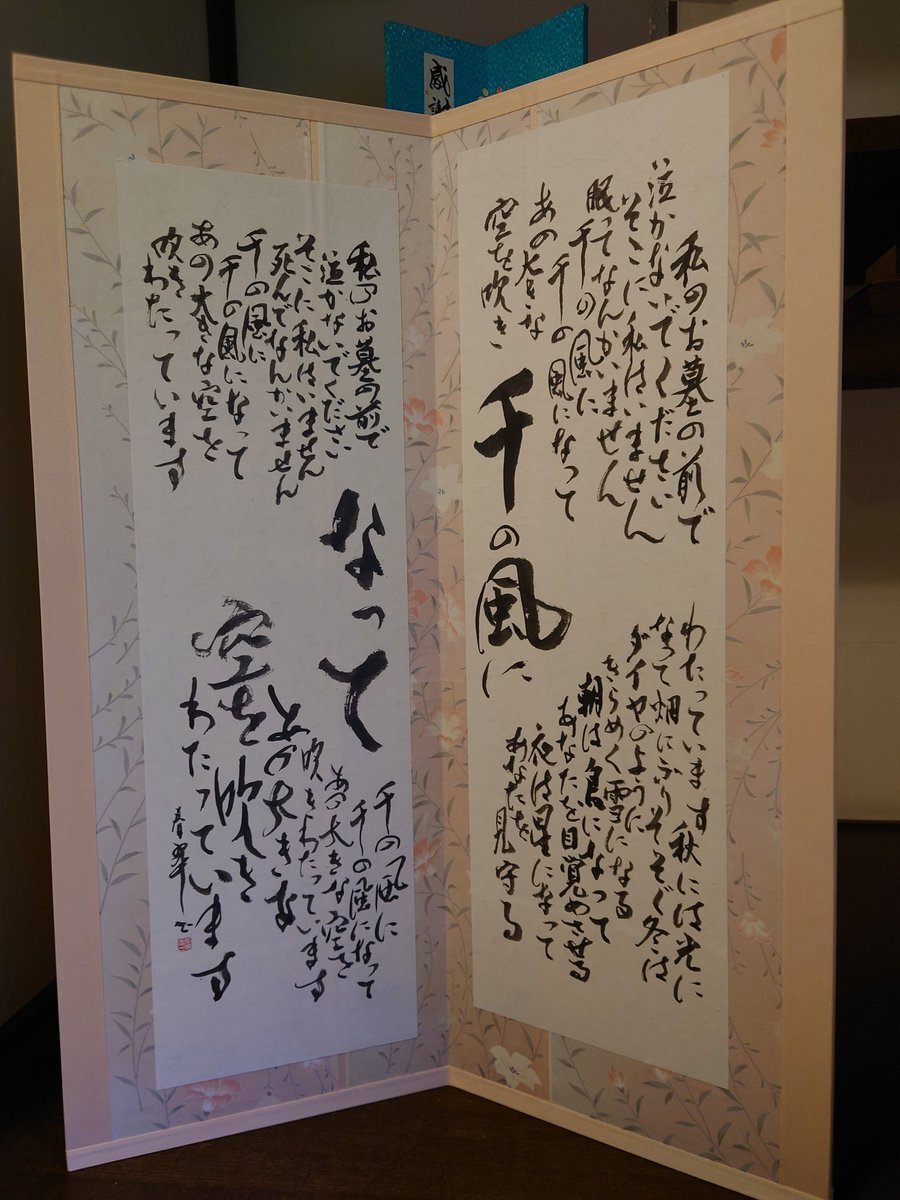 感謝
私のお墓の前で
泣かないでください
そこに私はいません
眠ってなんかいません
千の風に
千の風になって
あの大きな
空を吹き
わたっています 秋には光に
なって畑にふりそそぐ 冬は
ダイヤのように
きらめく雪になる
朝は鳥になって
あなたを目覚めさせる
夜は星になって
あなたを見守る
千の風に
なって
私のお墓の前で
泣かないでください
そこに私はいません
死んでなんかいません
千の風に
千の風になって
あの大きな空を
吹き
わたっています
千の風に
千の風になって
あの大きな空を
吹きわたっています
あの大きな
空を吹き
わたっています